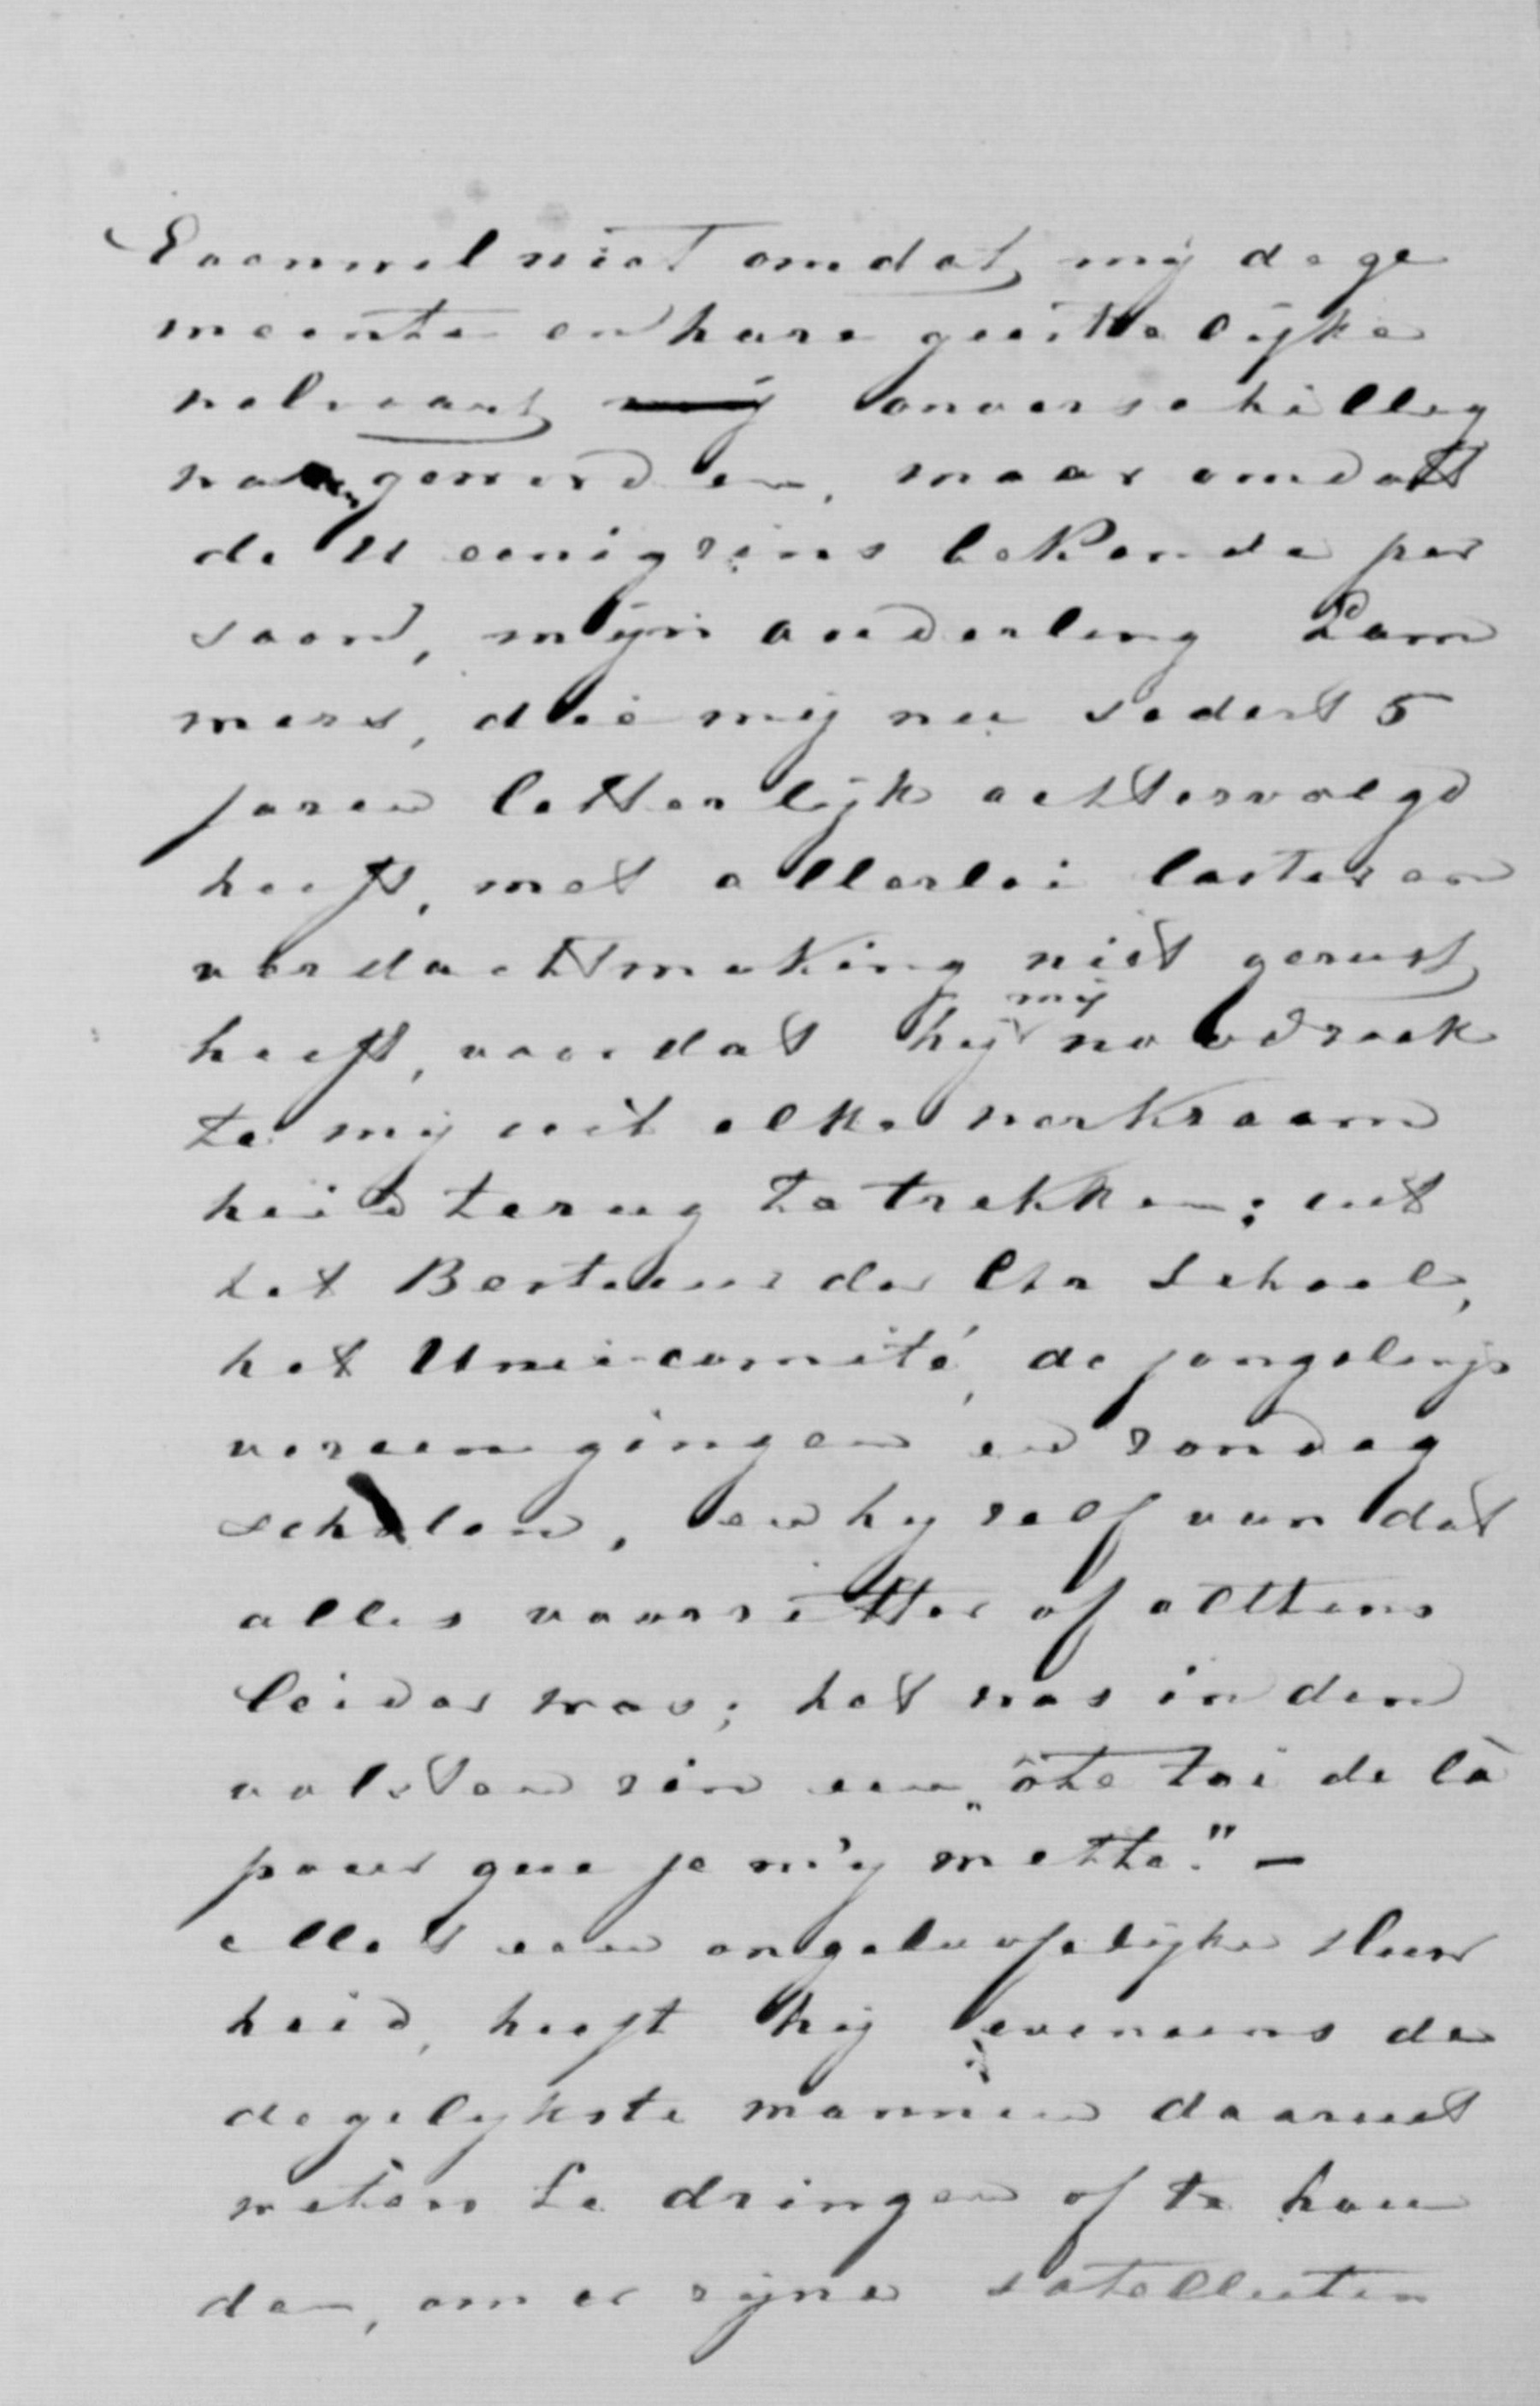 Evenwel niet omdat mij de ge
meente en hare geestelijke
welvaart mij onverschillig
waren geworden, maar omdat
de U eenigzins bekende per
soon, mijn ouderling Lam
mers, die mij nu sedert 5
jaren letterlijk achtervolgd
heeft, met allerlei laster en
verdachtmaking niet gerust
heeft, voordat hij mij noodzaak
te mij uit elke werkzaam
heid terug te trekken; uit
het Bestuur der Chr School,
het Unie-comité, de jongelings
vereenigingen en zondag
scholen, en hij zelf van dat
alles voorzitter of althans
leider was; het was in den
volsten zin een „ôte toi de là
pour que je m'y mette." —
Met een ongeloofelijke sluw
heid, heeft hij eveneens de
degelijkste mannen daaruit
weten te dringen of te hou
den, om er zijne satellieten